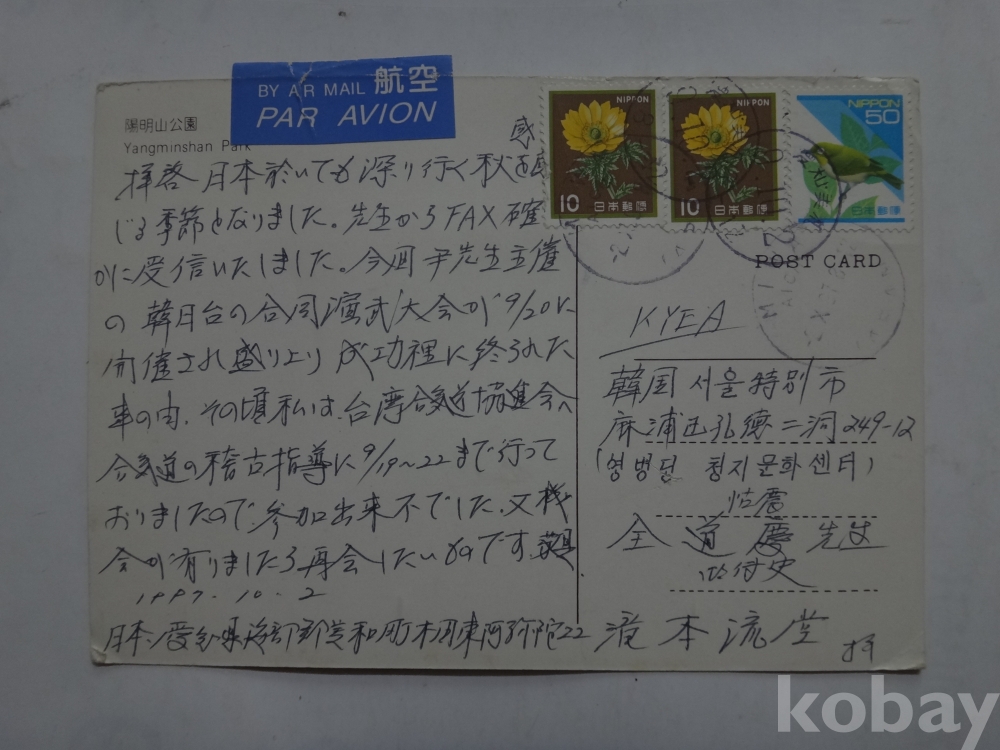 BY AIR MAIL 航空
PAR AVION
陽明山公園
Yangminshan Park
NIPPON
10 日本郵便
NIPPON
10 日本郵便
NIPPON
50
日本郵便
感
拝啓 日本於いても深り行く秋を
じる季節となりました。先生からFAX確
かに受信いたしました。今回尹先生主催
の韓日台の合同演武大会が9/20に
開催され盛り上り成功裡に終られた
事の由、その頃私は、台湾合気道協進会へ
合気道の稽古指導に9/19~22まで行って
おりましたので、参加出来不でした。又機
会が有りましたら再会したいものです。
1997.10.2
日本、愛知県海部郡美和町木折東阿弥陀22 滝本流堂
POST CARD
KYEA
韓国 서울特別市
麻浦区孔徳二洞249-12
(영병빌 청지문화센터)
全道慶先生
kobay